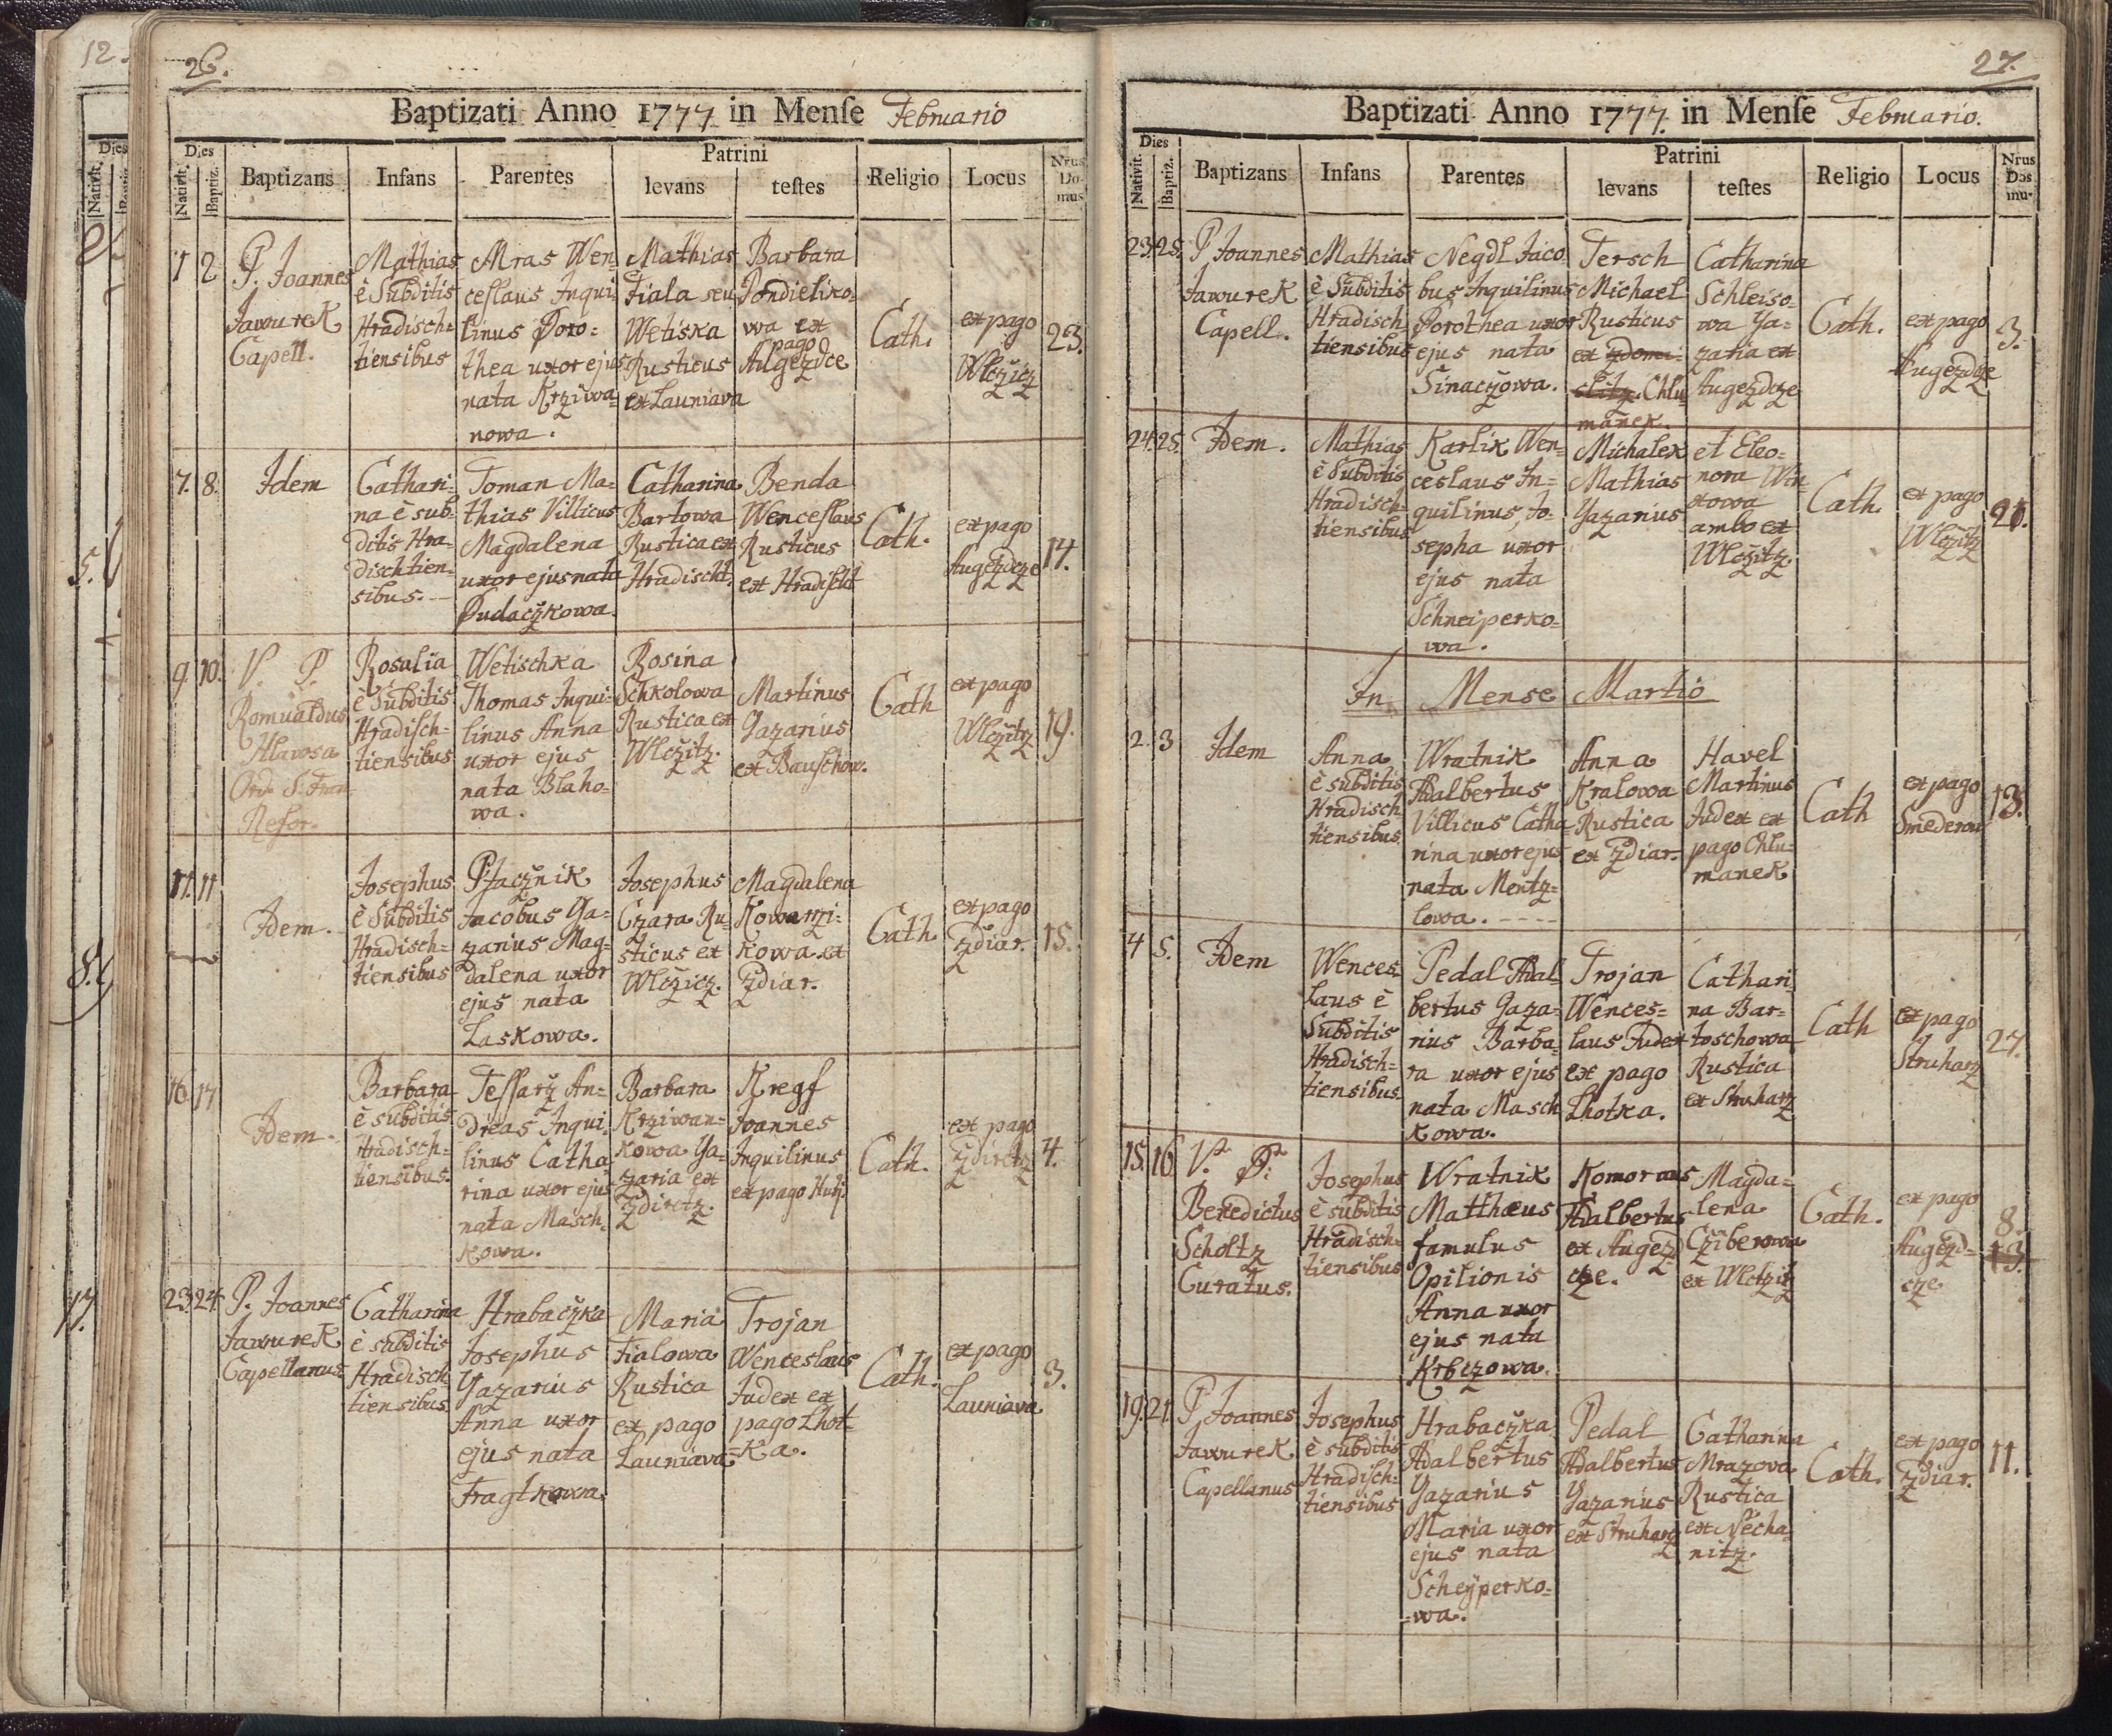 26.
Baptizati Anno 1777 in Mense Februario
Dies
Nativit. Baptiz. Baptizans Infans Parentes Patrini levans testes Religio Locus Nrus Domus
1 2
P. Joannes
Jawurek
Capell.
Mathias
è Subditis
Hradisch-
tiensibus
Mras Wen-
ceslaus Inqui-
linus Doro=
thea uxor ejus
nata Krziwa=
nowa.
Mathias
Fiala seu
Wetiska
Rusticus
ex Launiava
Barbara
Pondieliko-
wa ex
pago
Augezdce
Cath.
ex pago
Wlczicz
23.
7. 8.
Idem
Cathari-
na è sub-
ditis Hra-
dischtien-
sibus.
Toman Ma-
thias Villicus
Magdalena
uxor ejus nata
Dudaczkowa.
Catharina
Bartowa
Rustica ex
Hradischt.
Benda
Wenceslaus
Rusticus
ex Hradischt
Cath.
ex pago
Augezdcze
14.
9. 10.
V. P.
Romualdus
Hlawosa
Ord. S. Fran.
Refor.
Rosalia
è Subditis
Hradisch-
tiensibus
Wetischka
Thomas Inqui-
linus Anna
uxor ejus
nata Blaho-
wa.
Rosina
Schkolowa
Rustica ex
Wlczitz.
Martinus
Gazarius
ex Bauschow.
Cath
ex pago
Wlczitz
19.
11. 11
Idem.
Josephus
è Subditis
Hradisch=
tiensibus
Ptacznik
Jacobus Ga-
zarius Mag-
dalena uxor
ejus nata
Laskowa.
Josephus
Czara Ru-
sticus ex
Wlczicz.
Magdalena
Kowarzi-
kowa ex
Zdiar.
Cath.
ex pago
Zdiar.
15.
16 17
Idem.
Barbara
è subditis
Hradisch=
tiensibus.
Tessarz An-
dreas Inqui-
linus Catha-
rina uxor ejus
nata Masch-
kowa.
Barbara
Krziwan=
kowa Ga-
zaria ex
Zdiretz.
Kregf
Joannes
Inquilinus
ex pago
Cath.
ex pago
Zdiretz
4.
23. 24.
P. Joannes
Jawurek
Capellanus
Catharina
è subditis
Hradisch
tiensibus.
Hrabaczka
Josephus
Gazarius
Anna uxor
ejus nata
Fragtkowa.
Maria
Fialowa
Rustica
ex pago
Launiava
Trojan
Wenceslaus
Judex ex
pago Lhot-
=ka.
Cath.
ex pago
Launiava
3.
27.
Baptizati Anno 1777. in Mense Februario.
Dies
Nativit. Baptiz. Baptizans Infans Parentes Patrini levans testes Religio Locus Nrus Domu-
23. 25.
P Joannes
Jawurek
Capell.
Mathias
è Subditis
Hradisch
tiensibus
Negdl Jaco
bus Inquilinus
Dorothea uxor
ejus nata
Sinaczowa.
Tersch
Michael
Rusticus
ex Zdomi-
slitz. Chlu-
manek.
Catharina
Schleiso-
wa Ga-
zaria ex
Augezdcze
Cath.
ex pago
Augezdcze
3.
24. 25.
Idem.
Mathias
è Subditis
Hradisch-
tiensibus
Karlik Wen-
ceslaus In-
quilinus, Jo-
sepha uxor
ejus nata
Schneiperko=
wa.
Michalek
Mathias
Gazarius
et Eleo-
nora Win-
xowa
ambo ex
Wlczitz.
Cath.
ex pago
Wlczitz
20.
In Mense Martio
2. 3
Idem
Anna
è subditis
Hradisch
tiensibus.
Wratnik
Adalbertus
Villicus Catha
rina uxor ejus
nata Mentz=
lowa.
Anna
Kralowa
Rustica
ex Zdiar.
Havel
Martinus
Judex ex
pago Chlu-
manek
Cath
ex pago
Smederow
13.
4 5.
Idem
Wences-
laus è
Subditis
Hradisch=
tiensibus.
Pedal Adal-
bertus Gaza-
rius Barba-
ra uxor ejus
nata Masch
kowa.
Trojan
Wences=
laus Judex
ex pago
Lhotka.
Cathari-
na Bar=
toschowa
Rustica
ex Struharz
Cath
ex pago
Struharz
27.
15. 16
V. P.
Benedictus
Scholtz
Curatus.
Josephus
è subditis
Hradisch=
tiensibus
Wratnik
Matthæus
famulus
Opilionis
Anna uxor
ejus nata
Krbczowa.
Komoraus
Adalbertus
ex Augezd
cze.
Magda=
lena
Cziberowa
ex Wlczitz
Cath.
ex pago
Augezd=
cze.
8.
13.
19. 21.
P Joannes
Jawurek
Capellanus
Josephus
è subditis
Hradisch-
tiensibus
Hrabaczka
Adalbertus
Gazarius
Maria uxor
ejus nata
Scheÿperko=
=wa.
Pedal
Adalbertus
Gazarius
ex Struharz
Catharina
Mrazova
Rustica
ex Necha-
nitz.
Cath.
ex pago
Zdiar.
11.